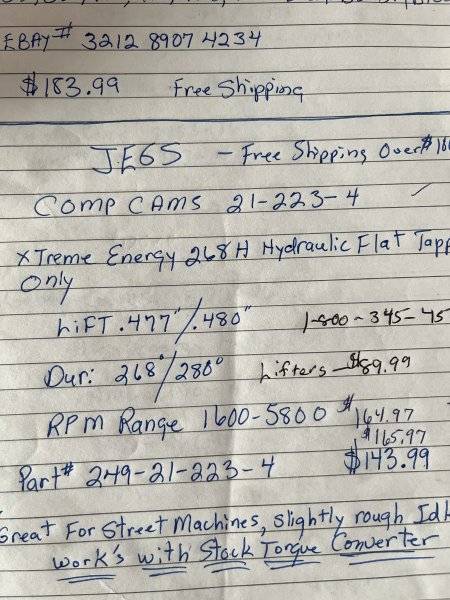 EBAY# 3212 8907 4234
$183.99 Free Shipping
JEGS - Free Shipping Over $
COMP CAMS 21-223-4
XTreme Energy 268H Hydraulic Flat Tapp
Only
LiFT .477"/.480" 1-800-345-45
Dur: 268°/280° Lifters - $89.99
RPM Range 1600-5800 $164.97
$165.97
Part# 249-21-223-4 $143.99
Great For Street Machines, Slightly rough Idl
work's with Stock Torque Converter